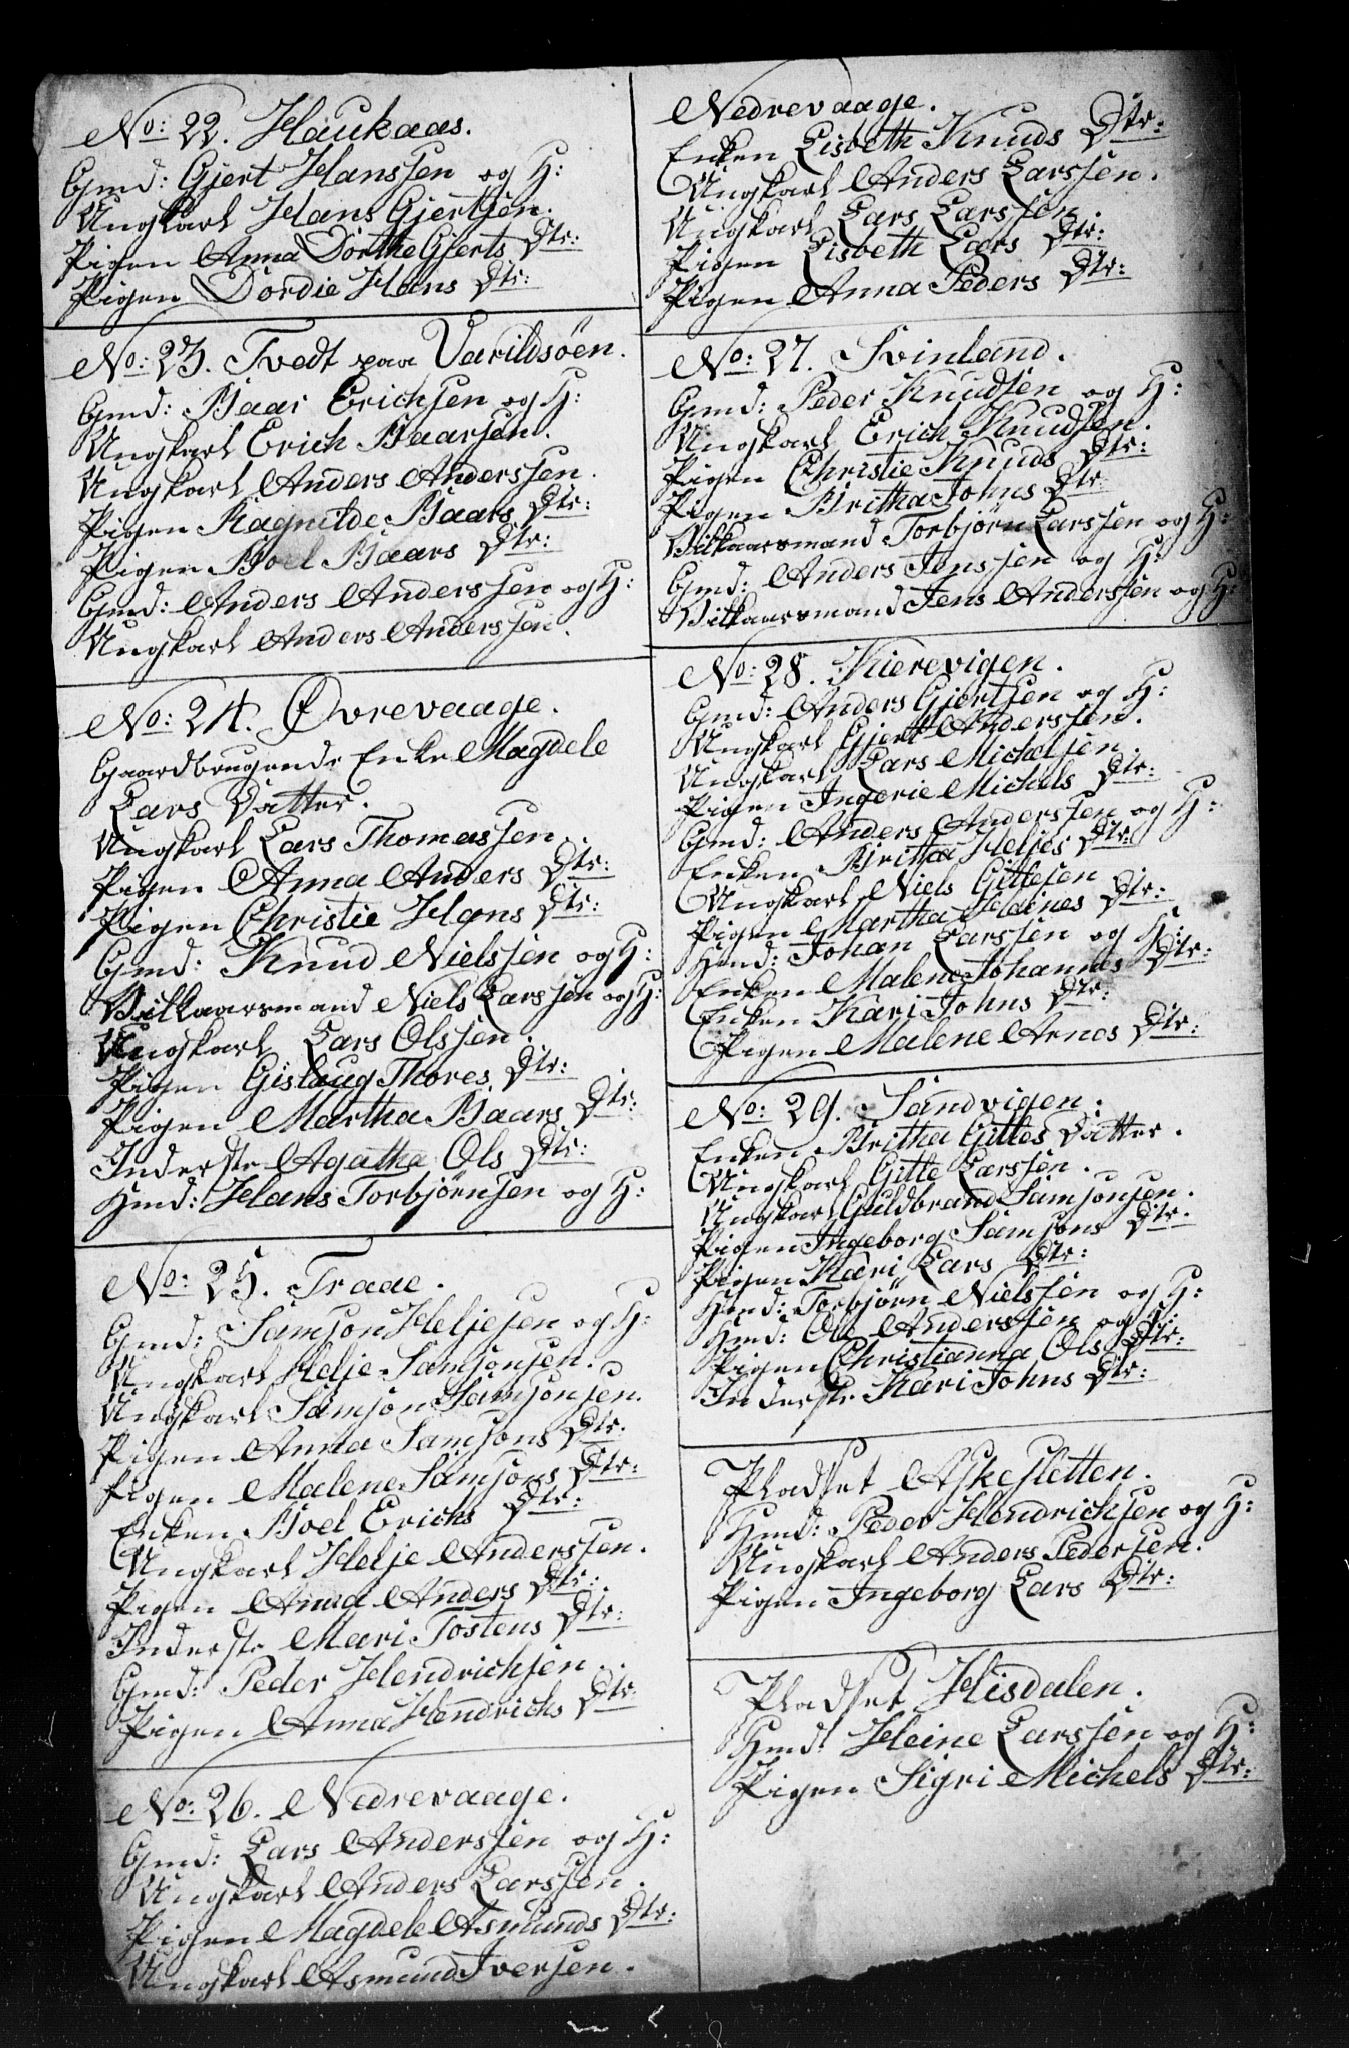 No: 22. Haukaas.
Gmd: Gjert Hanssen og H:
Ungkarl Hans Gjertsen.
Pigen Anna Dorthe Gjerts Dtr:
Pigen Dordie Hans Dtr:
No: 23. Tvedt paa Varildsöen.
Gmd: Baar Erichsen og H:
Ungkarl Erich Baarsen.
Ungkarl Anders Anderssen.
Pigen Ragnilde Baars Dtr:
Pigen Boel Baars Dtr:
Gmd: Anders Anderssen og H:
Ungkarl Anders Anderssen.
No: 24. Øvrevaage.
Gaardbrugende Enke Magdele
Lars Datter.
Ungkarl Lars Thomassen.
Pigen Anna Anders Dtr:
Pigen Christie Hans Dtr:
Gmd: Knud Nielssen og H:
Vilkaarsmand Niels Larssen og H:
Ungkarl Lars Olssen.
Pigen Gislaug Thores Dtr:
Pigen Martha Baars Dtr:
Inderste Agatha Ols Dtr:
Hmd: Hans Torbjörnsen og H:
No: 25. Traae.
Gmd: Samson Heljesen og H:
Ungkarl Helje Samsonsen.
Ungkarl Samson Samsonsen.
Pigen Anna Samsons Dtr:
Pigen Malene Samsons Dtr:
Enken Boel Erichs Dtr:
Ungkarl Helje Anderssen.
Pigen Anna Anders Dtr:
Inderste Mari Tostens Dtr:
Gmd: Peder Hendrichsen.
Pigen Anna Hendrichs Dtr:
No: 26. Nedrevaage.
Gmd: Lars Anderssen og H:
Ungkarl Anders Larssen.
Pigen Magdele Asmunds Dtr:
Ungkarl Asmund Iversen.
Nedrevaage.
Enken Lisbeth Knuds Dtr:
Ungkarl Anders Larssen.
Ungkarl Lars Larssen.
Pigen Lisbeth Lars Dtr:
Pigen Anna Peders Dtr:
No: 27. Svinland.
Gmd: Peder Knudsen og H:
Ungkarl Erich Knudsen.
Pigen Christie Knuds Dtr:
Pigen Britha Johns Dtr:
Vilkaarsmand Torbjörn Larssen og H:
Gmd: Anders Jenssen og H:
Vilkaarsmand Jens Anderssen og H:
No: 28. Kierevigen.
Gmd: Anders Gjertsen og H:
Ungkarl Gjert Anderssen.
Ungkarl Lars Michelsen.
Pigen Ingerie Michels Dtr:
Gmd: Anders Anderssen og H:
Enken Britha Heljes Dtr:
Ungkarl Niels Gittesen
Pigen Martha Heines Dtr:
Hmd: Johan Larssen og H:
Enken Malene Johannes Dtr:
Enken Kari Johns Dtr:
Pigen Malene Arnes Dtr:
No: 29. Sandvigen.
Enken Britha Gittes Datter.
Ungkarl Gitle Larssen.
Ungkarl Guldbrand Samsonsen.
Pigen Ingeborg Samsons Dtr:
Pigen Kari Lars Dtr:
Hmd: Torbjörn Nielssen og H:
Hmd: Ole Anderssen og H:
Pigen Christianna Ols Dtr:
Inderste Kari Johns Dtr:
Pladset Askesletten.
Hmd: Peder Hendrichsen og H:
Ungkarl Anders Pedersen.
Pigen Ingeborg Lars Dtr:
Pladset Hisdalen.
Hmd: Heine Larssen og H:
Pigen Sigri Michels Dtr: